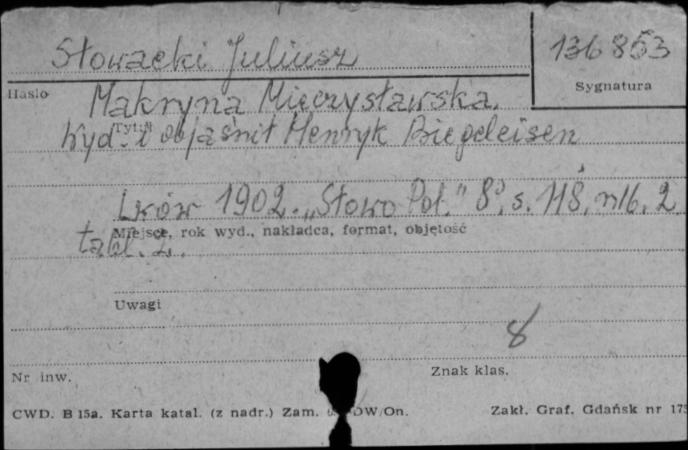 Słowacki Juliusz
136853
Hasło
Sygnatura
Makryna Mieczysławska.
Tytuł
Wyd. i objaśnił Henryk Biegeleisen
Lwów 1902. "Słowo Pol." 8°, s. 118, nlb. 2
tabl. 2.
Miejsce, rok wyd., nakładca, format, objętość
Uwagi
8
Nr inw.
Znak klas.
CWD. B 15a. Karta katal. (z nadr.) Zam. DW/On.
Zakł. Graf. Gdańsk nr 173